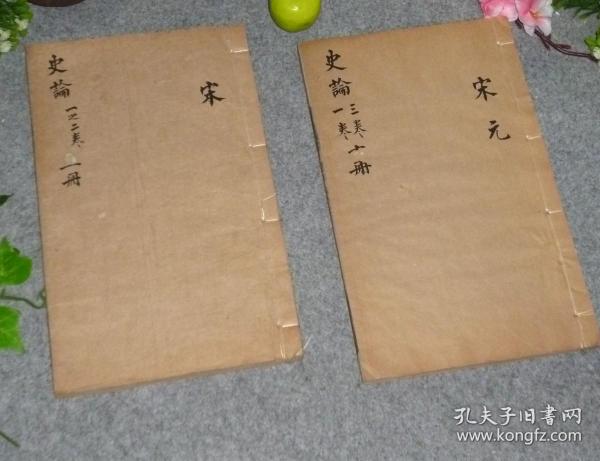 史論 一之二卷 一冊
宋
史論
三卷
一卷
十冊
宋元
孔夫子旧書网
www.kongfz.com